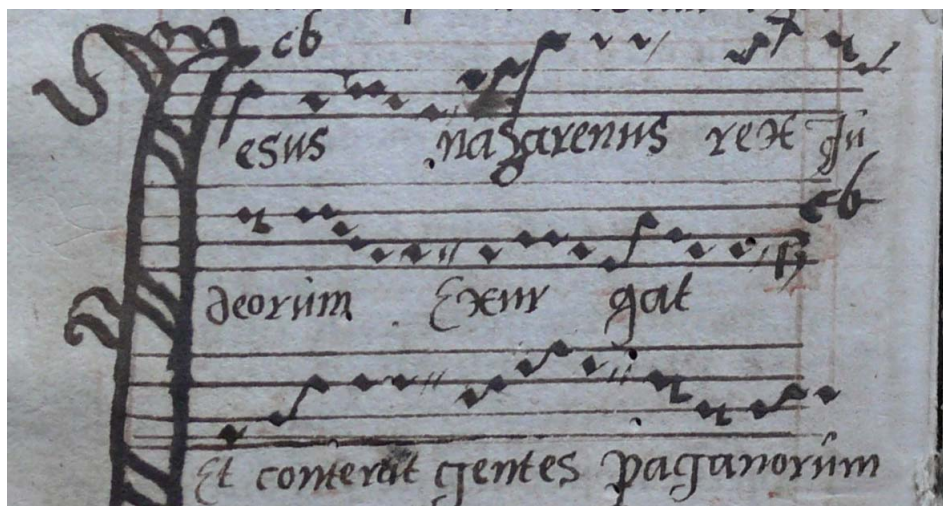 cb
esus nazarenus rex Ju
cb
deorum Exur gat
Et conterat gentes paganorum